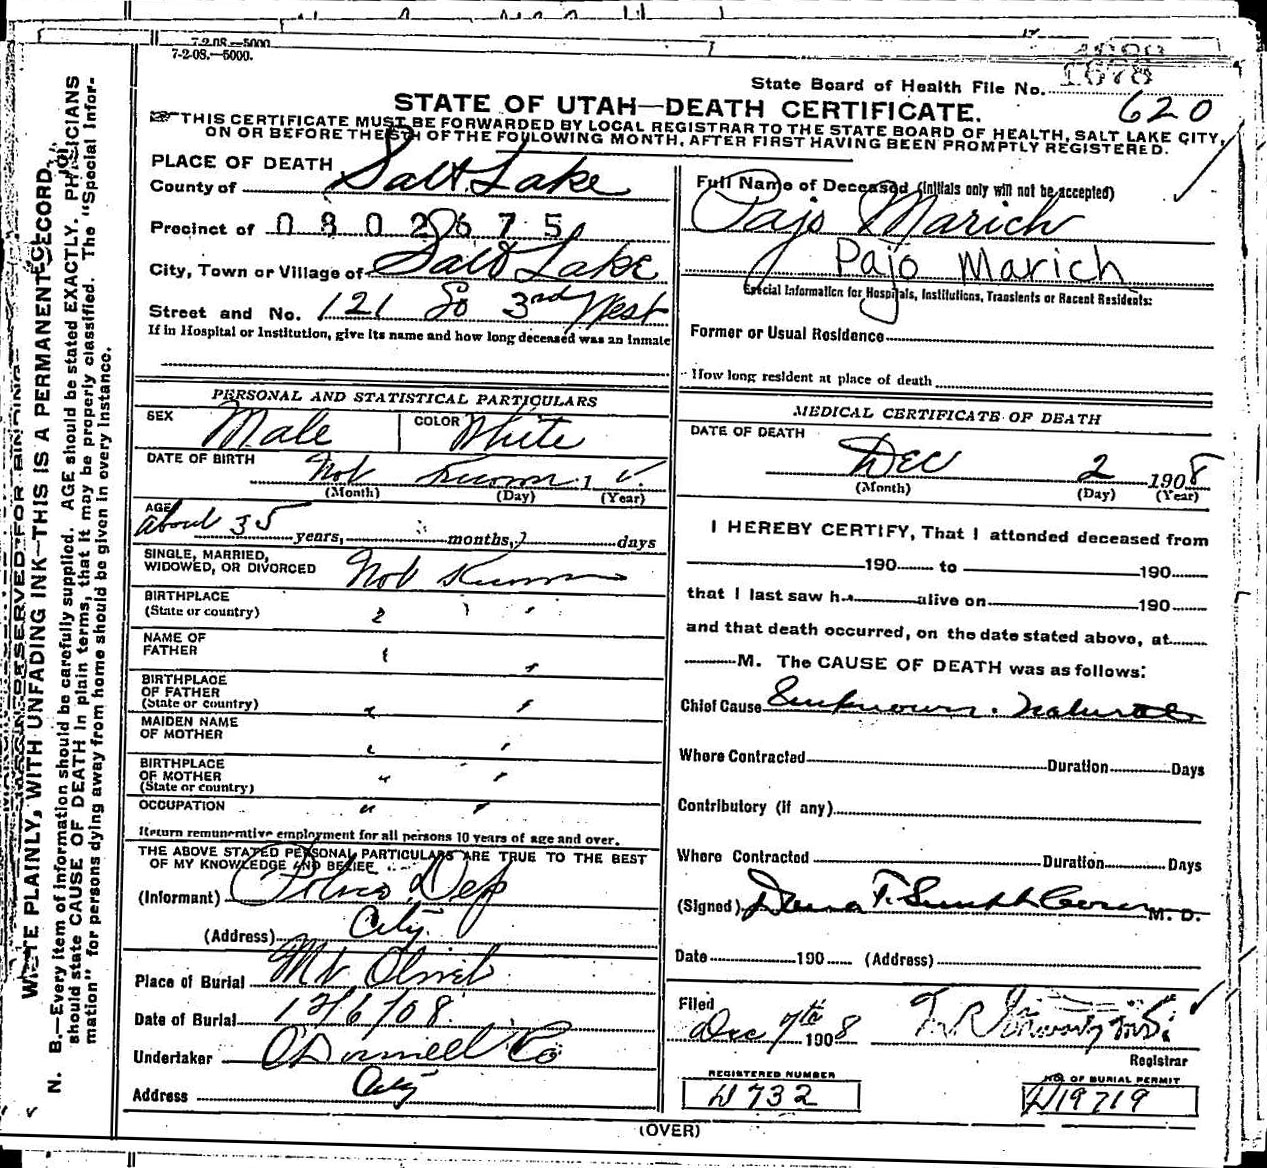 7-2-08.—5000.
7-2-08.—5000.
State Board of Health File No. 1678
620
STATE OF UTAH—DEATH CERTIFICATE.
THIS CERTIFICATE MUST BE FORWARDED BY LOCAL REGISTRAR TO THE STATE BOARD OF HEALTH, SALT LAKE CITY,
ON OR BEFORE THE 5TH OF THE FOLLOWING MONTH, AFTER FIRST HAVING BEEN PROMPTLY REGISTERED.
PLACE OF DEATH
County of Salt Lake
Precinct of 0802675
City, Town or Village of Salt Lake
Street and No. 121 So 3rd West
If in Hospital or Institution, give its name and how long deceased was an Inmate
PERSONAL AND STATISTICAL PARTICULARS
SEX Male COLOR White
DATE OF BIRTH Not Known
(Month) (Day) (Year)
AGE about 35 years, months, days
SINGLE, MARRIED,
WIDOWED, OR DIVORCED Not Known
BIRTHPLACE
(State or country) " "
NAME OF
FATHER " "
BIRTHPLACE
OF FATHER
(State or country) " "
MAIDEN NAME
OF MOTHER " "
BIRTHPLACE
OF MOTHER
(State or country) " "
OCCUPATION " "
Return remunerative employment for all persons 10 years of age and over.
THE ABOVE STATED PERSONAL PARTICULARS ARE TRUE TO THE BEST
OF MY KNOWLEDGE AND BELIEF
(Informant) Police Dep
(Address) City
Place of Burial Mt Olivet
Date of Burial 12/6/08.
Undertaker O'Donnell Co
Address City
Full Name of Deceased (Initials only will not be accepted)
Pajo Marich
Pajo Marich
Special Information for Hospitals, Institutions, Transients or Recent Residents:
Former or Usual Residence
How long resident at place of death
MEDICAL CERTIFICATE OF DEATH
DATE OF DEATH
Dec 2 1908
(Month) (Day) (Year)
I HEREBY CERTIFY, That I attended deceased from
190 to 190
that I last saw h alive on 190
and that death occurred, on the date stated above, at
M. The CAUSE OF DEATH was as follows:
Chief Cause Unknown. Natural
Where Contracted Duration Days
Contributory (if any)
Where Contracted Duration Days
(Signed) Dana T. Smith M. D.
Date 190 (Address)
Filed
Dec 7th 1908
Registrar
REGISTERED NUMBER
D732
NO. OF BURIAL PERMIT
D19719
(OVER)
WRITE PLAINLY, WITH UNFADING INK—THIS IS A PERMANENT RECORD.
N. B.—Every item of information should be carefully supplied. AGE should be stated EXACTLY. PHYSICIANS
should state CAUSE OF DEATH in plain terms, that it may be properly classified. The "Special Infor-
mation" for persons dying away from home should be given in every instance.